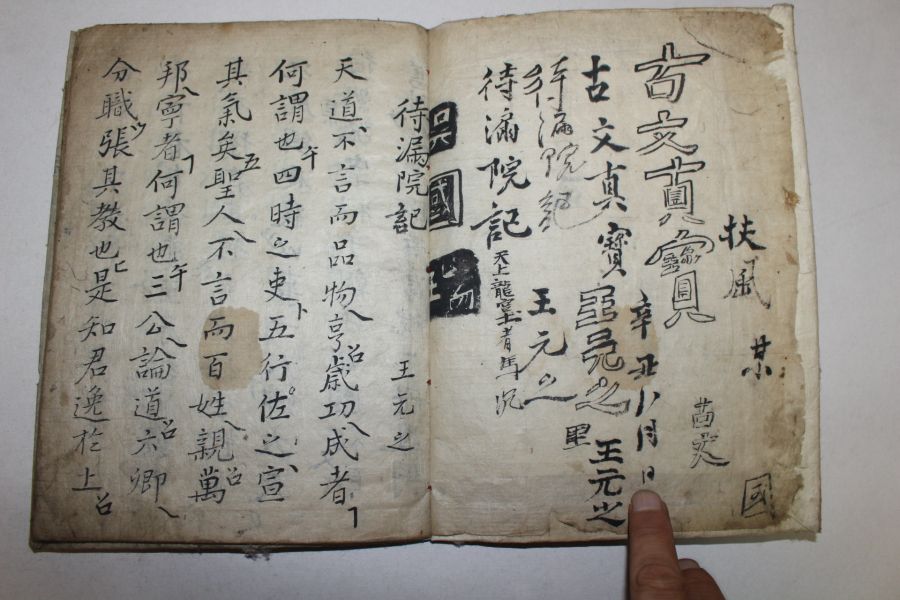 扶風
國
古文眞寶
辛丑八月 日
古文眞寶
王元之
里
待漏院記
王元之
待漏院記
天上龍
國
待漏院記 王元之
天道不言而品物亨歲功成者
何謂也四時之吏五行佐之宣
其氣矣聖人不言而百姓親萬
邦寧者何謂也三公論道六卿
分職張其教也是知君逸於上